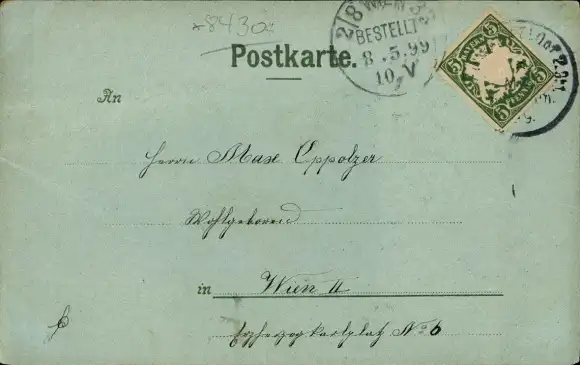 *8430a
2/8 WIEN
BESTELLT
8.5.99
10 V
Postkarte.
5 5
5 5
An
Herrn Max Oppolzer
Wohlgeboren
in Wien II
Erzherzog Karlplatz No 6